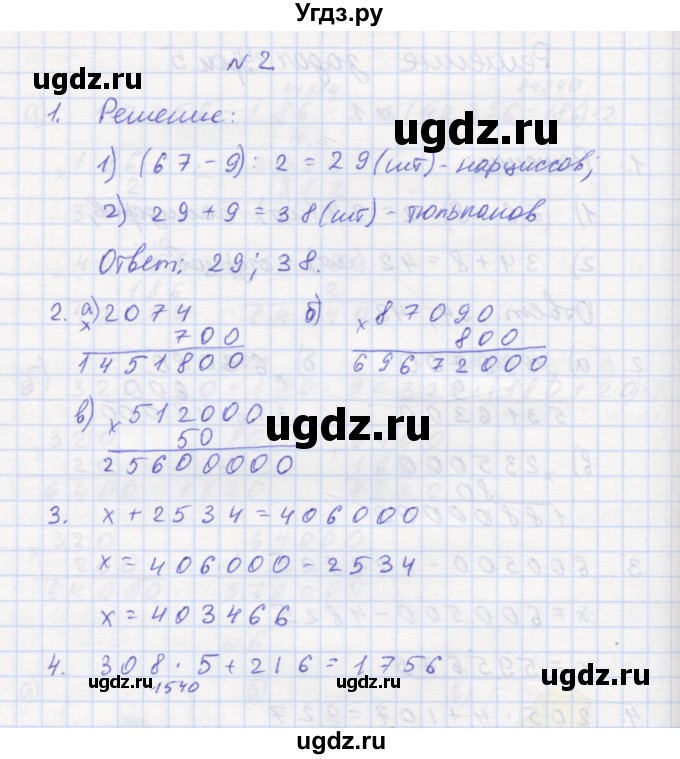 Угдз.ру
N 2
ugdz.ru
1. Решение:
ugdz.ru
1) (67-9) : 2 = 29 (шт) - нарциссов;
2) 29 + 9 = 38 (шт) - тюльпанов
Ответ: 29; 38.
ugdz.ru
2. а) 2074 б) 87090
× 700 × 800
1451800 69672000
в) 512000
× 50
25600000
ugdz.ru
3. x + 2534 = 406000
x = 406000 - 2534
x = 403466
4. 308 · 5 + 216 = 1756
1540
ugdz.ru ugdz.ru ugdz.ru
ugdz.ru